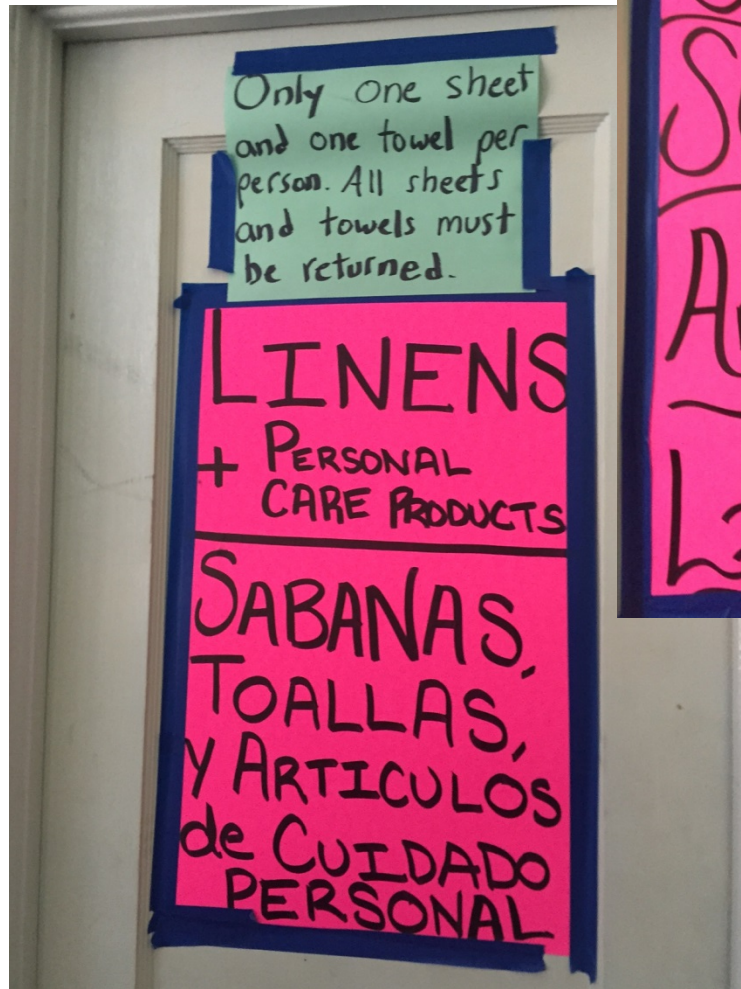 Only one sheet
and one towel per
person. All sheets
and towels must
be returned.
LINENS
+ PERSONAL
CARE PRODUCTS
SABANAS,
TOALLAS,
y ARTICULOS
de CUIDADO
PERSONAL